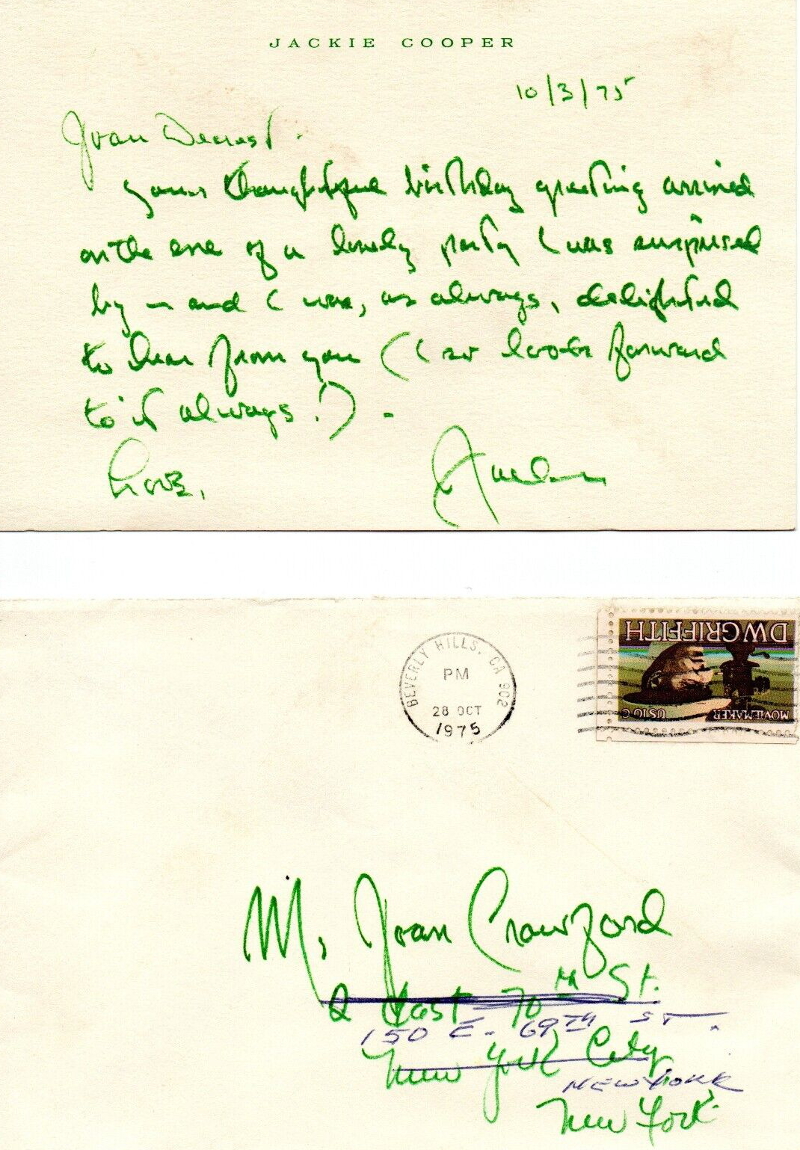 JACKIE COOPER
10/3/75
Joan Dearest -
your thoughtful birthday greeting arrived
on the eve of a lovely party I was surprised
by — and I was, as always, delighted
to hear from you (I so look forward
to it always!) -
Love,
BEVERLY HILLS, CA 902
PM
28 OCT
1975
DW GRIFFITH
MOVIEMAKER
US 10 C
M. Joan Crawford
2 East 70th St.
150 E. 69TH ST.
New York City
NEW YORK
New York